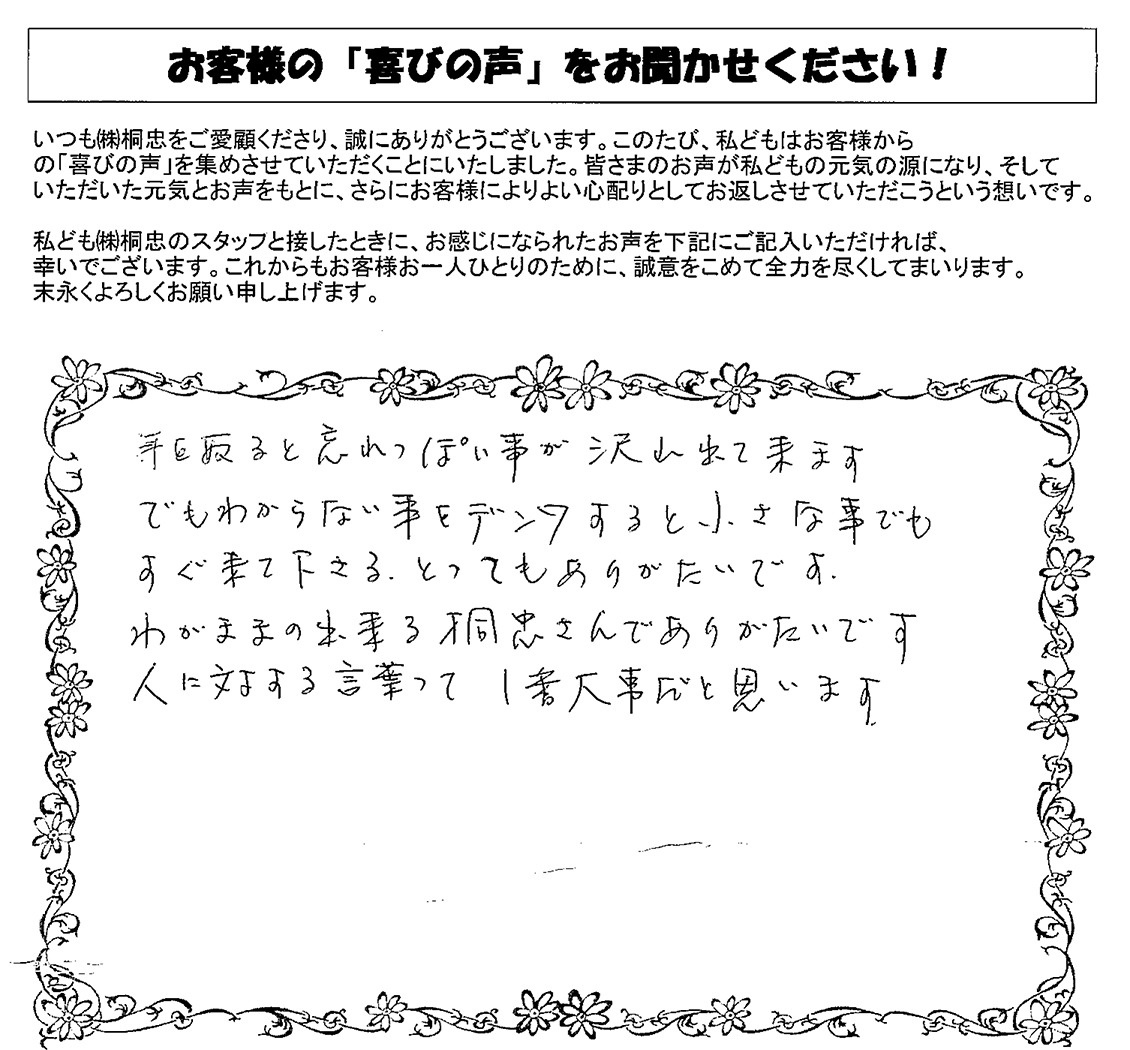 お客様の「喜びの声」をお聞かせください！
いつも㈱桐忠をご愛顧くださり、誠にありがとうございます。このたび、私どもはお客様から
の「喜びの声」を集めさせていただくことにいたしました。皆さまのお声が私どもの元気の源になり、そして
いただいた元気とお声をもとに、さらにお客様によりよい心配りとしてお返しさせていただこうという想いです。
私ども㈱桐忠のスタッフと接したときに、お感じになられたお声を下記にご記入いただければ、
幸いでございます。これからもお客様お一人ひとりのために、誠意をこめて全力を尽くしてまいります。
末永くよろしくお願い申し上げます。
年を取ると忘れっぽい事が沢山出て来ます
でもわからない事をデンワすると小さな事でも
すぐ来て下さる。とってもありがたいです。
わがままの出来る桐忠さんでありがたいです
人に対する言葉って1番大事だと思います